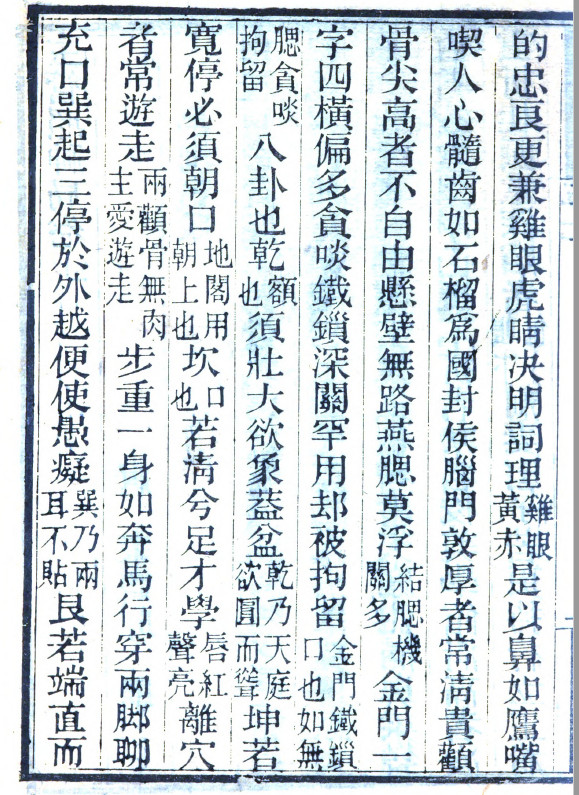 的忠良更兼雞眼虎睛决明詞理雞眼黃赤是以鼻如鷹嘴
喫人心髓齒如石榴爲國封侯腦門敦厚者常淸貴顴
骨尖高者不自由懸壁無路燕腮莫浮結腮機關多金門一
字四橫偏多貪啖鐵鎖深關罕用却被拘留金門鐵鎖口也如無
腮貪啖拘留八卦也乾額也須壯大欲象蓋盆乾乃天庭欲圓而聳坤若
寬停必須朝口地閣用朝上也坎口也若淸兮足才學唇紅聲亮離穴
者常遊走兩顴骨無肉主愛遊走步重一身如奔馬行穿兩脚聊
充口巽起三停於外越便使愚癡巽乃兩耳不貼艮若端直而